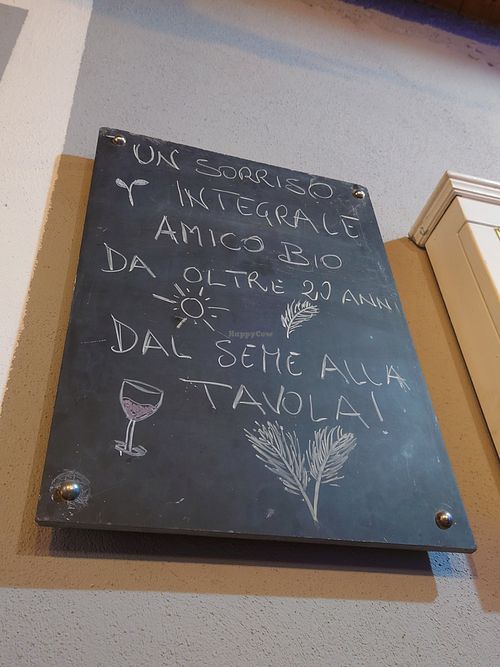 UN SORRISO
INTEGRALE
AMICO BIO
DA OLTRE 20 ANNI
DAL SEME ALLA
TAVOLA!
HappyCow